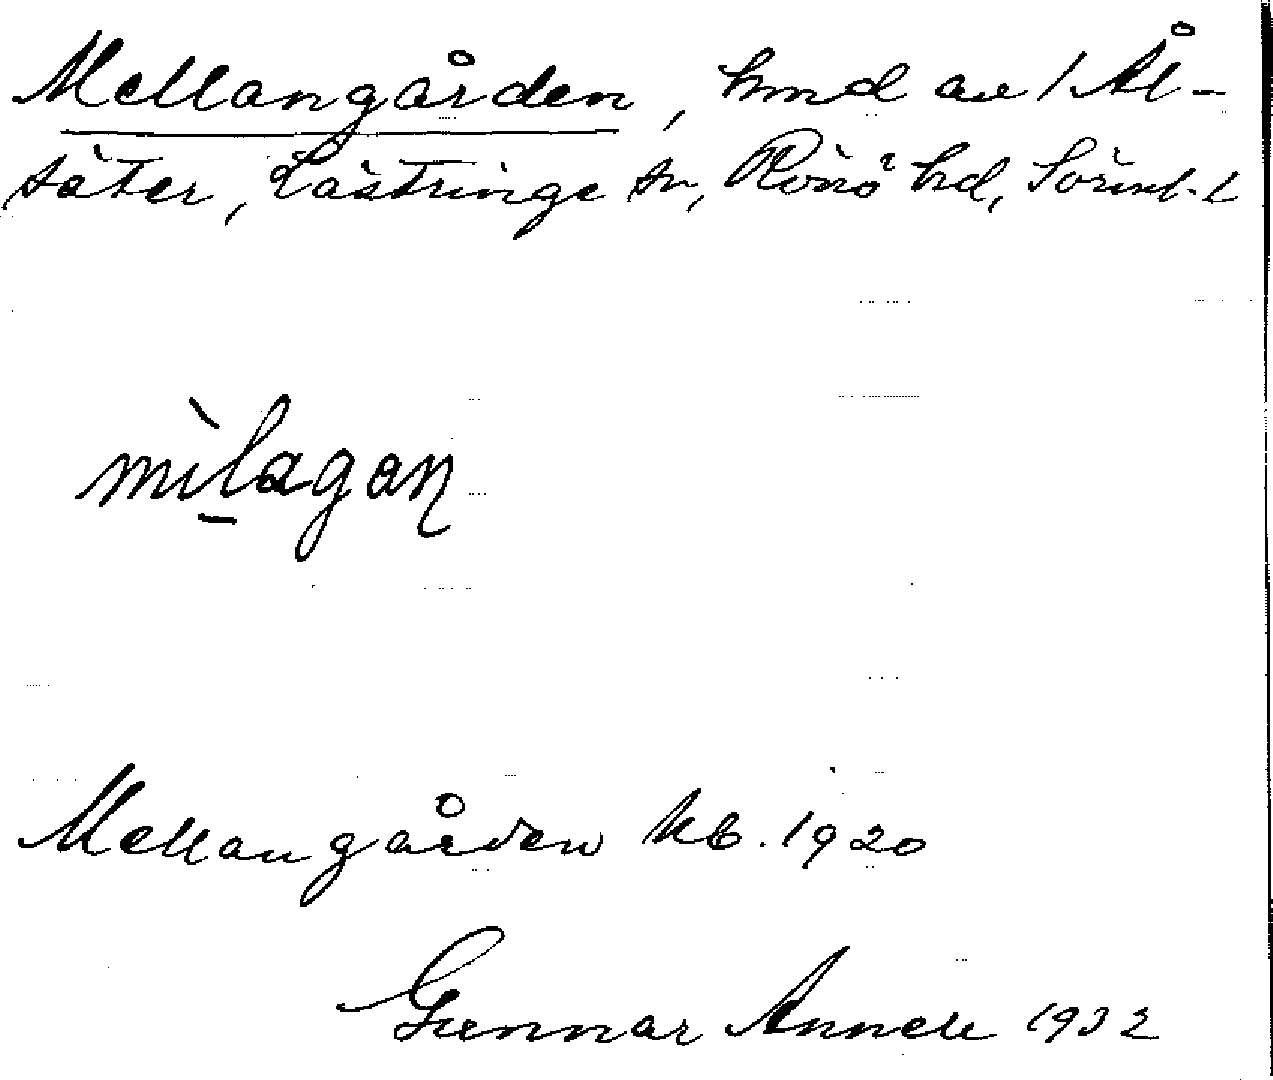 Mellangården, hmd av 1 Ål-
säter, Lästringe sn, Rönö hd, Söderml. l
mìlagaɳ
Mellangården kb. 1920
Gunnar Annell 1932